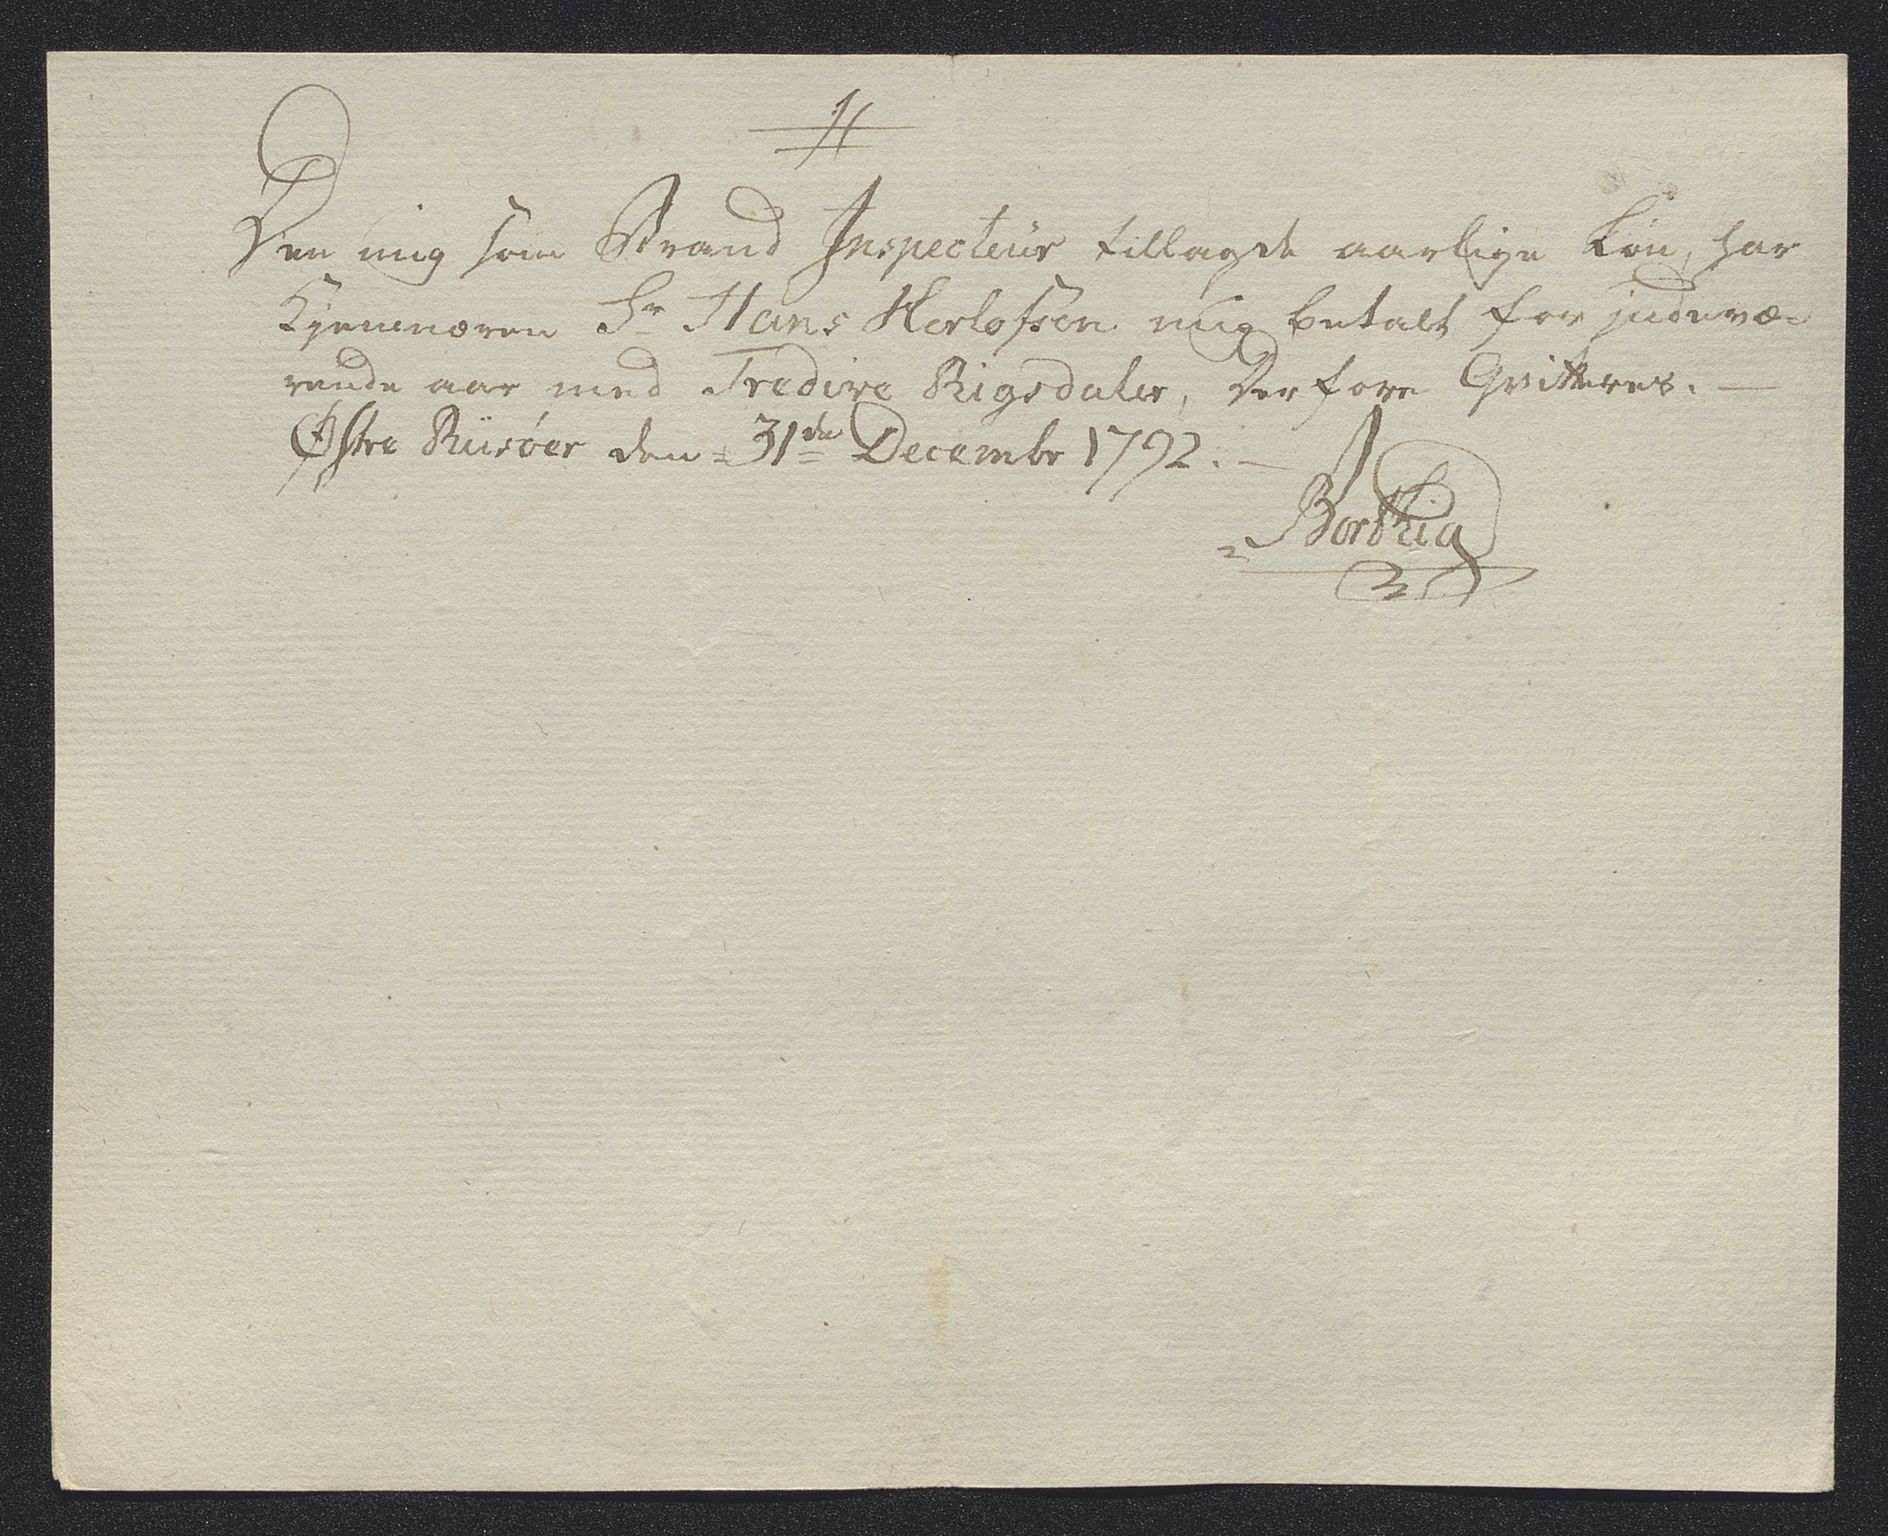 Den mig som Strand Inspecteur tillagde aarlige Løn, har
Kjemneren Sr Hans Herlofsen mig betalt for indevæ-
rende aar med Tredive Rigsdaler, derfore Qvitteres. —
Østre Riisøer den 31de Decembr 1792. —